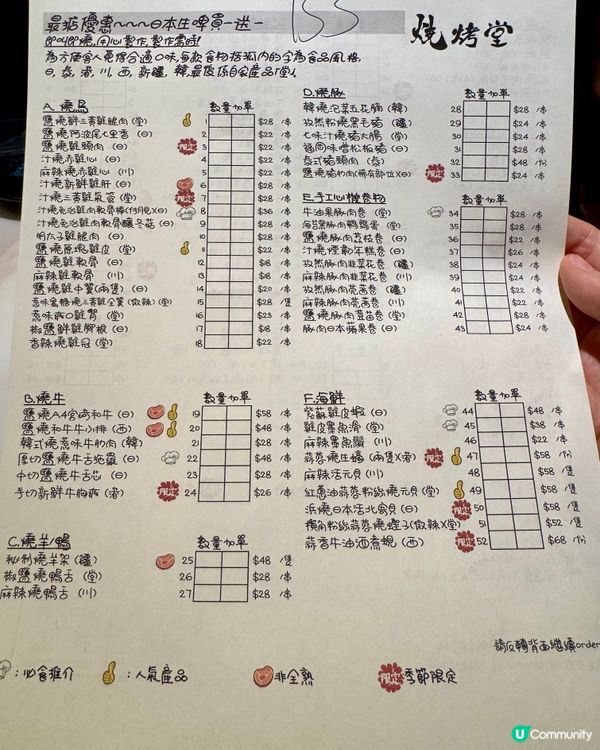 最新優惠~~~日本生啤買一送一
燒烤堂
即叫即燒,用心製作,製作需時!
為方便客人覓得合適口味,每款食物括弧內的字為食品風格,
日、泰、港、川、西、新疆、韓最後項自家產品「堂」。
A. 燒鳥 數量加單
鹽燒鮮三黃雞腿肉(堂) 1 $28 /串
鹽燒阿波尾七里香(日) 2 $22 /串
鹽燒雞頸肉(日) 限定 3 $22 /串
汁燒赤雞心(日) 4 $22 /串
麻辣燒赤雞心(川) 5 $22 /串
汁燒新鮮雞肝(日) 6 $28 /串
汁燒三黃雞氣管(堂) 限定 7 $28 /串
汁燒免治雞肉軟骨棒(日) 8 $36 /串
汁燒免治雞肉軟骨釀冬菇(日) 9 $28 /串
明太子雞腿肉(日) 10 $28 /串
鹽燒原塊雞皮(堂) 11 $22 /串
鹽燒雞軟骨(日) 12 $18 /串
麻辣雞軟骨(川) 13 $18 /串
鹽燒雞中翼(兩隻)(日) 14 $20 /串
惹味蜜糖燒三黃雞全翼(微辣)(堂) 15 $28 /隻
惹味雞腎(堂) 16 $23 /串
椒鹽鮮雞腳根(日) 17 $18 /串
香辣燒雞冠(堂) 18 $22 /串
B.燒牛 數量加單
鹽燒A4宮崎和牛(日) 19 $58 /串
鹽燒和牛牛小排(西) 20 $48 /串
韓式燒惹味牛肋肉(韓) 21 $28 /串
厚切鹽燒牛舌(日) 22 $48 /串
中切鹽燒牛舌芯(日) 23 $28 /串
手切新鮮牛胸爽(港) 限定 24 $26 /串
C.燒羊/鴨 數量加單
秘制燒羊架(疆) 25 $48 /隻
椒鹽燒鴨舌(堂) 26 $28 /串
麻辣燒鴨舌(川) 27 $28 /串
D.燒豚 數量加單
韓燒泡菜五花腩(韓) 28 $28 /串
孜然粉燒黑毛豬(疆) 29 $24 /串
七味汁燒豬大腸(堂) 30 $24 /串
福岡味噌松板豬(日) 31 $28 /串
泰式豬頸肉(泰) 32 $48 /份
鹽燒豬肋肉(稀有部位)(日) 限定 33 $24 /串
E.手工心機卷物 數量加單
牛油果豚肉卷(堂) 34 $28 /串
海苔黑豚肉鵪鶉蛋(堂) 35 $28 /串
鹽燒豚肉荔枝卷(日) 36 $22 /串
汁燒煙韌年糕卷(日) 37 $26 /串
孜然豚肉韭菜花卷(疆) 38 $24 /串
麻辣豚肉韭菜花卷(川) 39 $24 /串
孜然豚肉芫茜卷(疆) 40 $22 /串
麻辣豚肉芫茜卷(川) 41 $22 /串
鹽燒豚肉苜苗卷(堂) 42 $28 /串
豚肉日本蘋果卷(日) 43 $24 /串
F.海鮮 數量加單
紫蘇雞皮蝦(日) 44 $48 /串
雞皮墨魚滑(堂) 45 $38 /串
麻辣墨魚鬚(川) 46 $22 /串
蒜蓉燒生蠔(兩隻)(港) 限定 47 $58 /份
麻辣活元貝(川) 48 $58 /隻
紅蔥油蒜蓉粉絲燒元貝(堂) 49 $58 /隻
浜燒日本活北寄貝(日) 限定 50 $58 /隻
欖角粉絲蒜蓉燒蟶子(微辣)(堂) 51 $52 /隻
蒜香牛油酒煮蜆(西) 限定 52 $68 /份
請反轉背面繼續order
:必食推介 :人氣產品 :非全熟 限定 季節限定
U Community